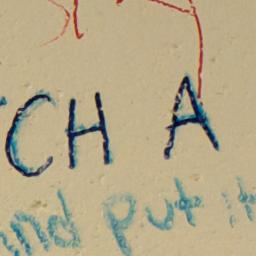 CH A
and put it